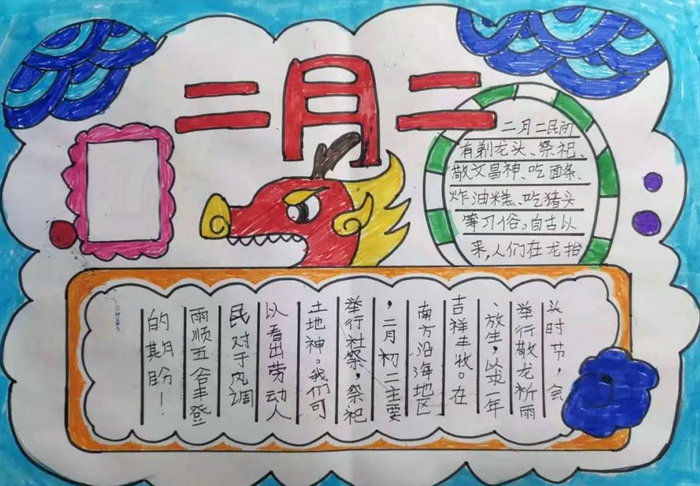 二月二
二月二民间
有剃龙头、祭祀、
敬文昌神、吃面条、
炸油糕、吃猪头
等习俗。自古以
来，人们在龙抬
头时节，会
举行敬龙祈雨
、放生，以求一年
吉祥丰收。在
南方沿海地区
，二月初二主要
举行社祭，祭祀
土地神。我们可
以看出劳动人
民对于风调
雨顺五谷丰登
的期盼！